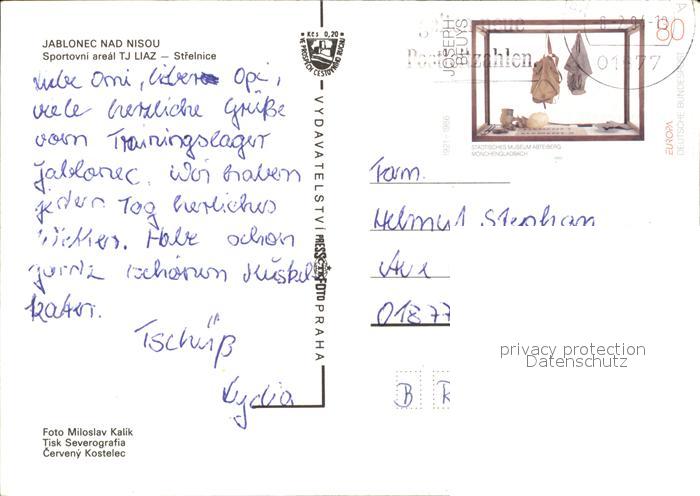 JABLONEC NAD NISOU
Sportovní areál TJ LIAZ – Střelnice
Liebe Omi, lieber Opi,
viele herzliche Grüße
vom Trainingslager
Jablonec. Wir haben
jeden Tag herrliches
Wetter. Habe schon
ganz schönen Muskel-
kater.
Tschüß
Lydia
Foto Miloslav Kalík
Tisk Severografia
Červený Kostelec
Kčs 0,20
VE PROSPĚCH CESTOVNÍHO RUCHU
VYDAVATELSTVÍ PRESSFOTO PRAHA
Postleitzahlen
01877
JOSEPH BEUYS
1921 - 1986
80
STÄDTISCHES MUSEUM ABTEIBERG
MÖNCHENGLADBACH
EUROPA
DEUTSCHE BUNDESPOST
Fam.
Helmut Stephan
01877
B
privacy protection
Datenschutz